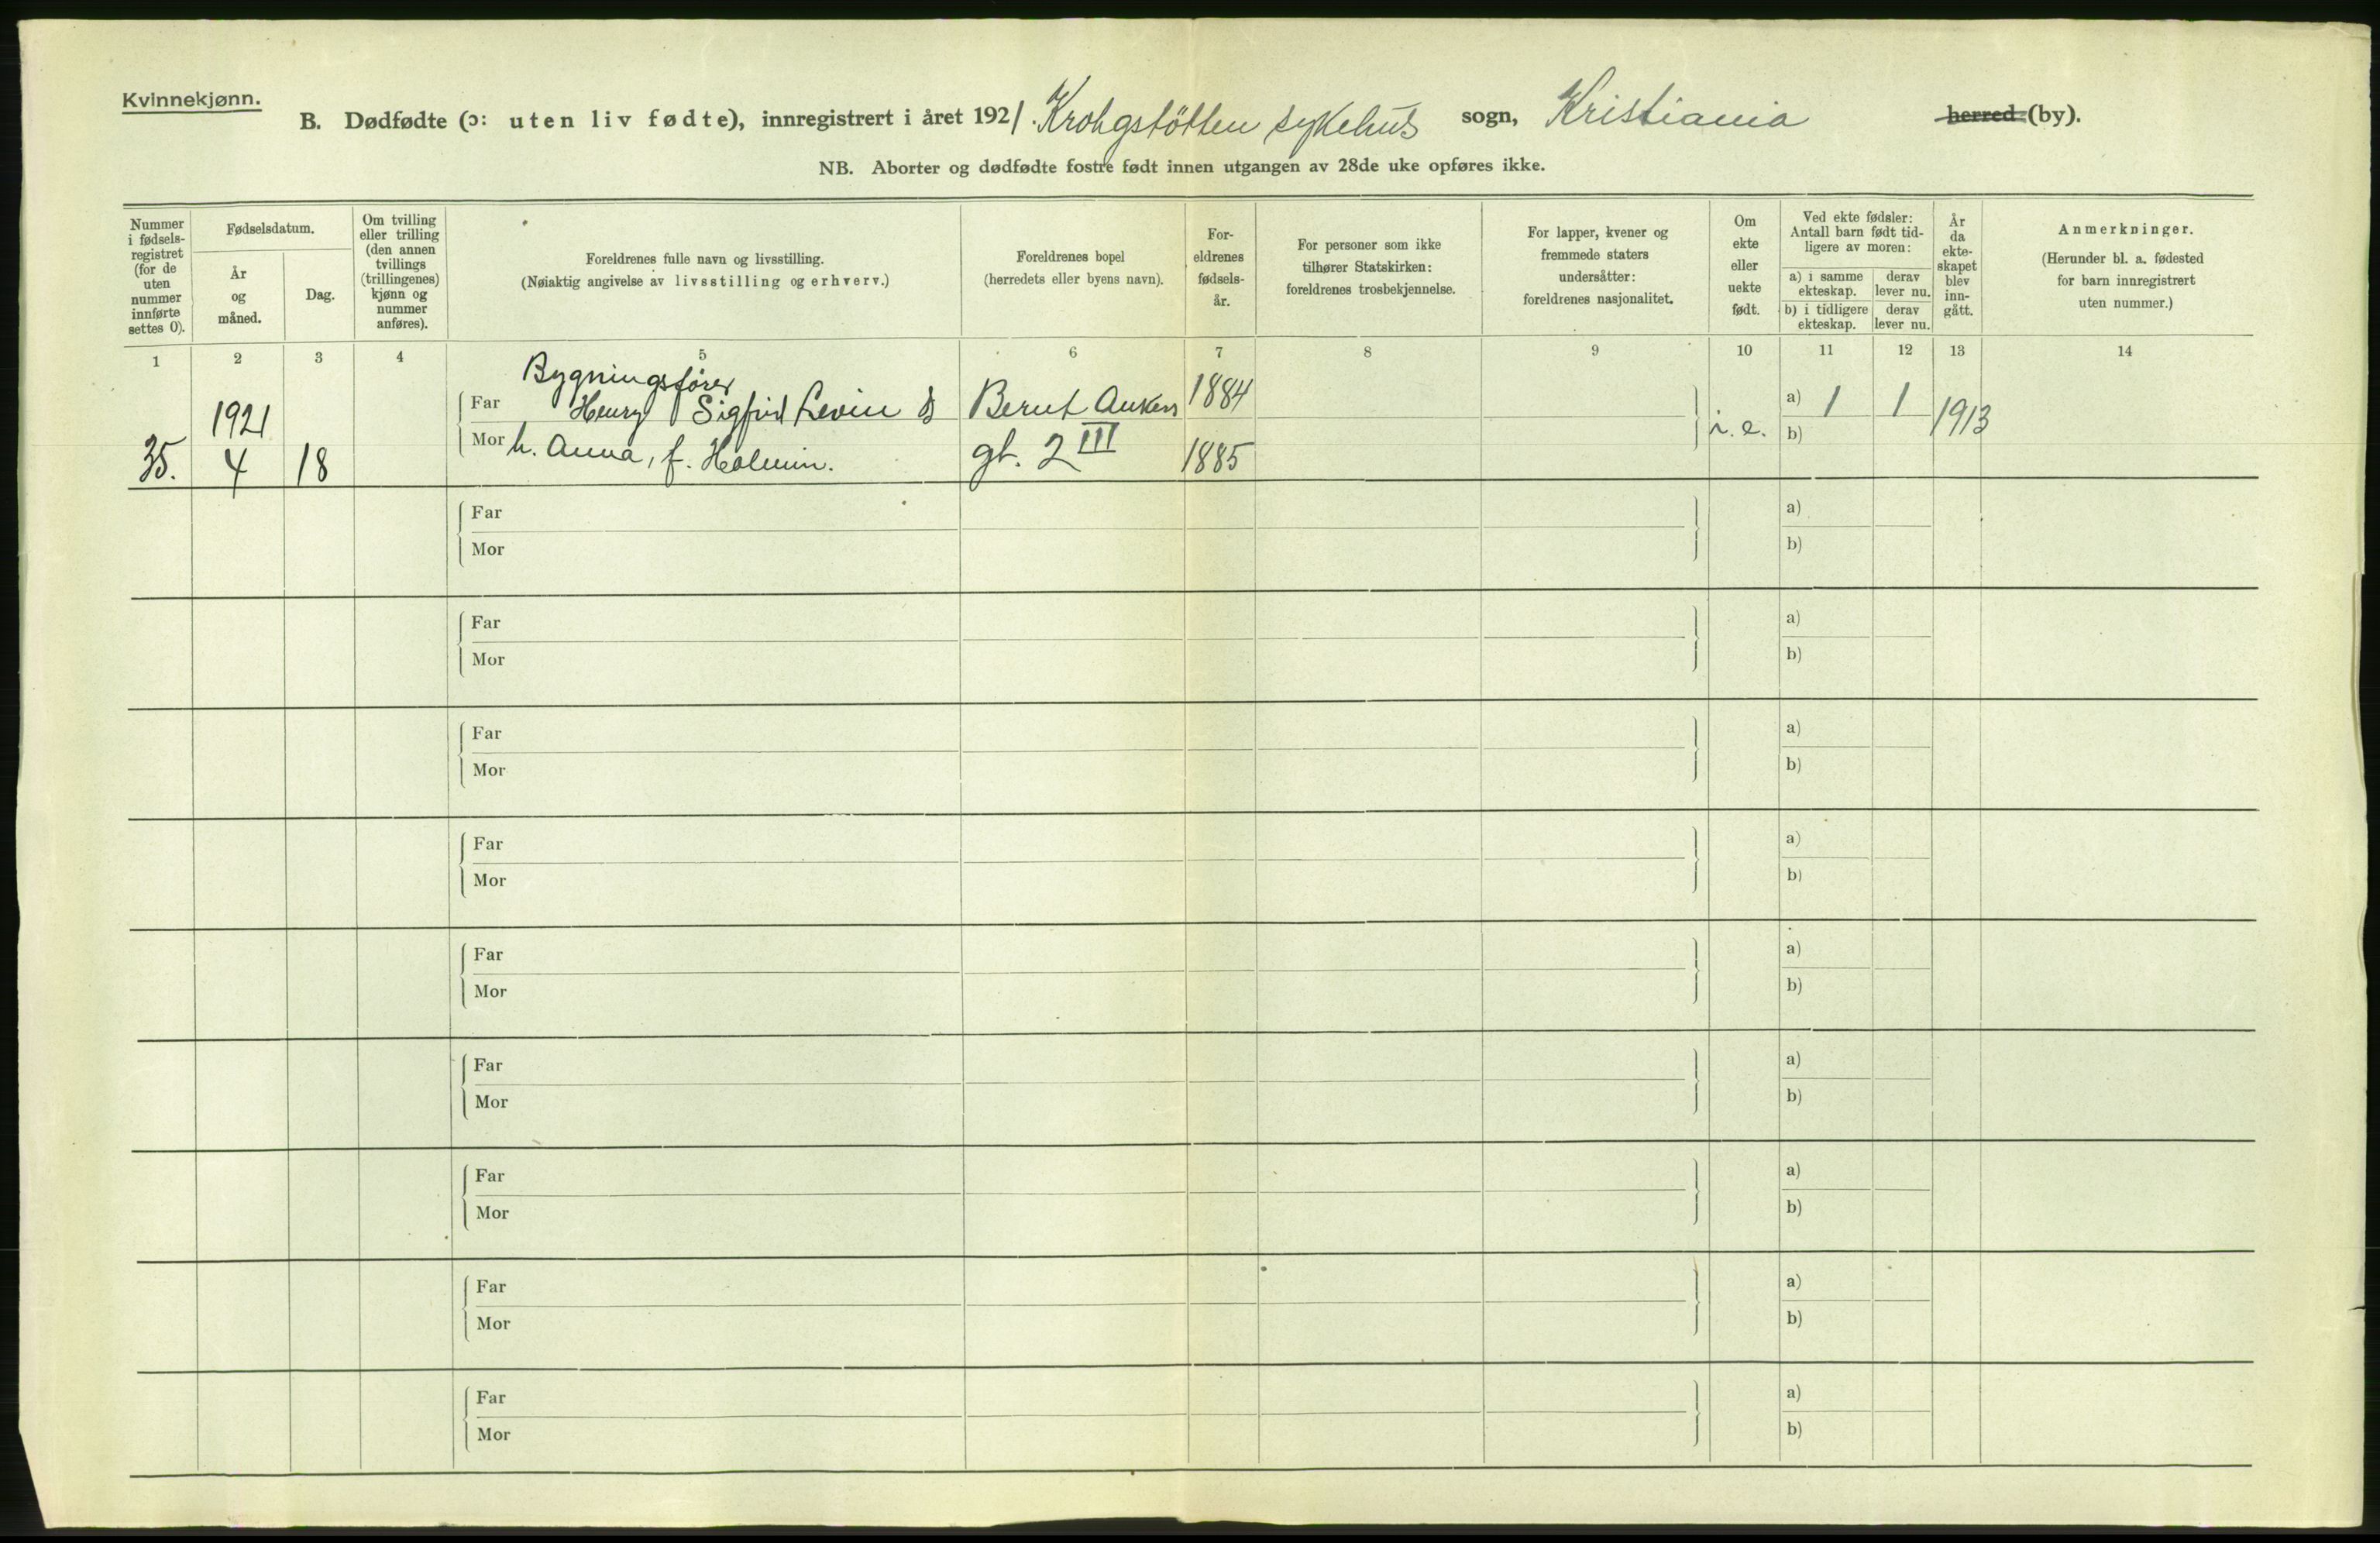 Kvinnekjønn.
B. Dødfødte (ɔ: uten liv fødte), innregistrert i året 1921. Krohgstötten sykehus sogn, Kristiania herred (by).
NB. Aborter og dødfødte fostre født innen utgangen av 28de uke opføres ikke.
Nummer i fødsels-registret (for de uten nummer innførte settes 0).
Fødselsdatum.
År og måned.
Dag.
Om tvilling eller trilling (den annen tvillings (trillingenes) kjønn og nummer anføres).
Foreldrenes fulle navn og livsstilling.
(Nøiaktig angivelse av livsstilling og erhverv.)
Foreldrenes bopel
(herredets eller byens navn).
For-eldrenes fødsels-år.
For personer som ikke tilhører Statskirken: foreldrenes trosbekjennelse.
For lapper, kvener og fremmede staters undersåtter: foreldrenes nasjonalitet.
Om ekte eller uekte født.
Ved ekte fødsler: Antall barn født tid-ligere av moren:
a) i samme ekteskap.
derav lever nu.
b) i tidligere ekteskap.
derav lever nu.
År da ekte-skapet blev inn-gått.
Anmerkninger.
(Herunder bl. a. fødested for barn innregistrert uten nummer.)
1 2 3 4 5 6 7 8 9 10 11 12 13 14
Bygningsfører
Far Henry Sigfrid Levin & Bernt Ankers 1884 a) 1 1
1921 i. e. 1913
Mor h. Anna, f. Holmin. gt. 2 III 1885 b)
35. 4 18
Far a)
Mor b)
Far a)
Mor b)
Far a)
Mor b)
Far a)
Mor b)
Far a)
Mor b)
Far a)
Mor b)
Far a)
Mor b)
Far a)
Mor b)
Far a)
Mor b)